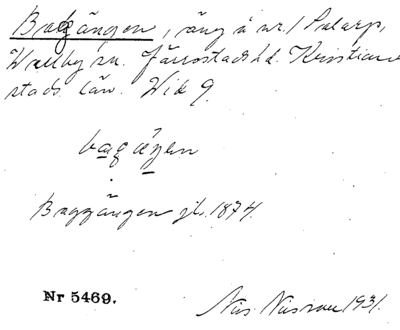 Baggängen, äng å nr 1 Pularp,
Wallby sn. Järrostads hd. Kristian-
stads län. Wik 9.
bagäŋen
Baggängen jb. 1874.
Nr 5469. Nils 1931.